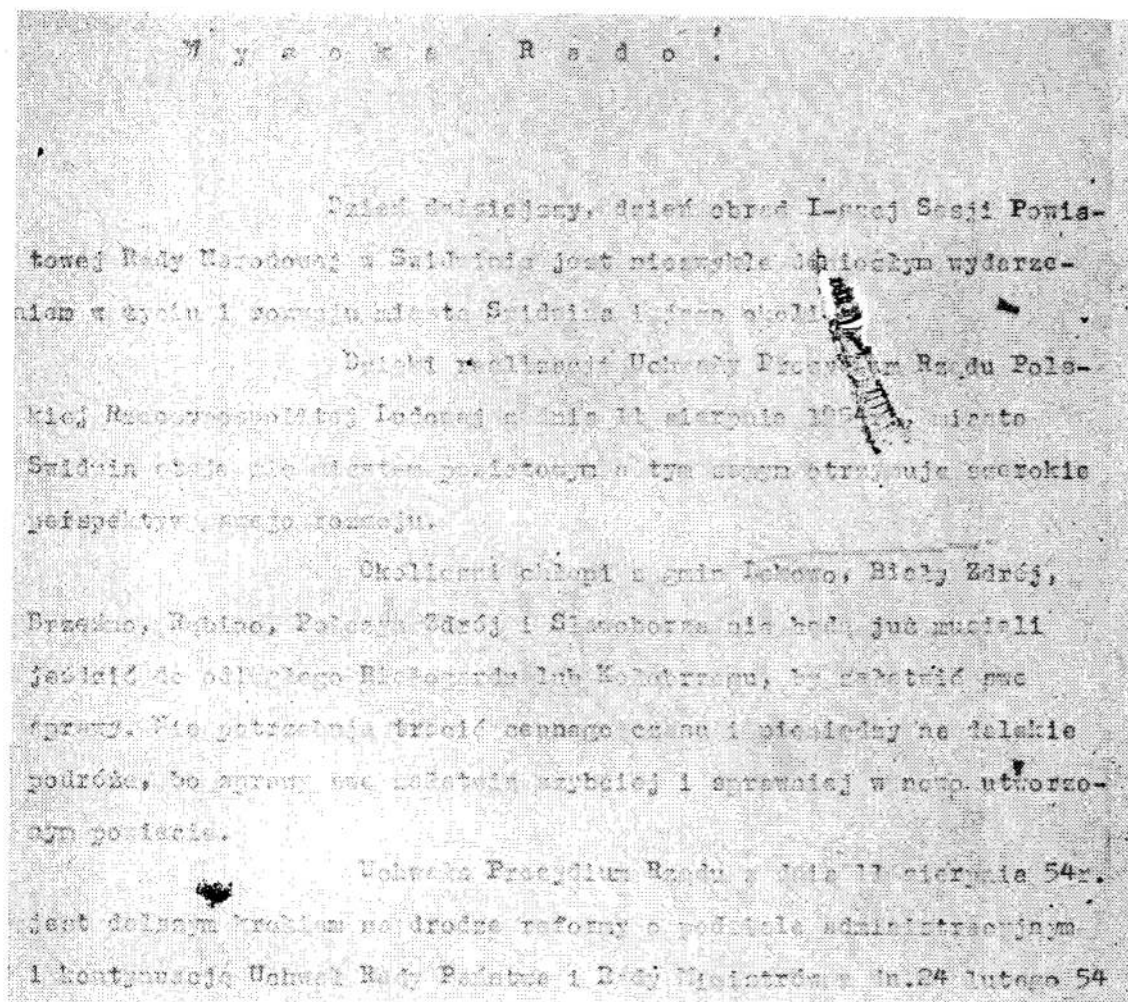 W y s o k a   R a d o !
Dzień dzisiejszy, dzień obrad I-szej Sesji Powia-
towej Rady Narodowej w Świdwinie jest niezwykle doniosłym wydarze-
niem w życiu i rozwoju miasta Świdwina i jego okolic
Dzięki realizacji Uchwały Prezydium Rządu Pols-
kiej Rzeczypospolitej Ludowej z dnia 11 sierpnia 1954 r. miasto
Świdwin staje się miastem powiatowym a tym samym otrzymuje szerokie
perspektywy swego rozwoju.
Okoliczni chłopi z gmin Lekowo, Biały Zdrój,
Brzeżno, Rąbino, Połczyn Zdrój i Sławoborze nie będą już musieli
jeździć do odległego Białogardu lub Kołobrzegu, by załatwić swe
sprawy. Nie potrzebują tracić cennego czasu i pieniędzy na dalekie
podróże, bo sprawy swe załatwią szybciej i sprawniej w nowo utworzo-
nym powiecie.
Uchwała Prezydium Rządu z dnia 11 sierpnia 54r.
jest dalszym krokiem na drodze reformy o podziale administracyjnym
i kontynuacją Uchwał Rady Państwa i Rady Ministrów z dn.24 lutego 54